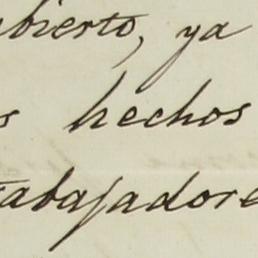 bierto, ya
s hechos
abajadore